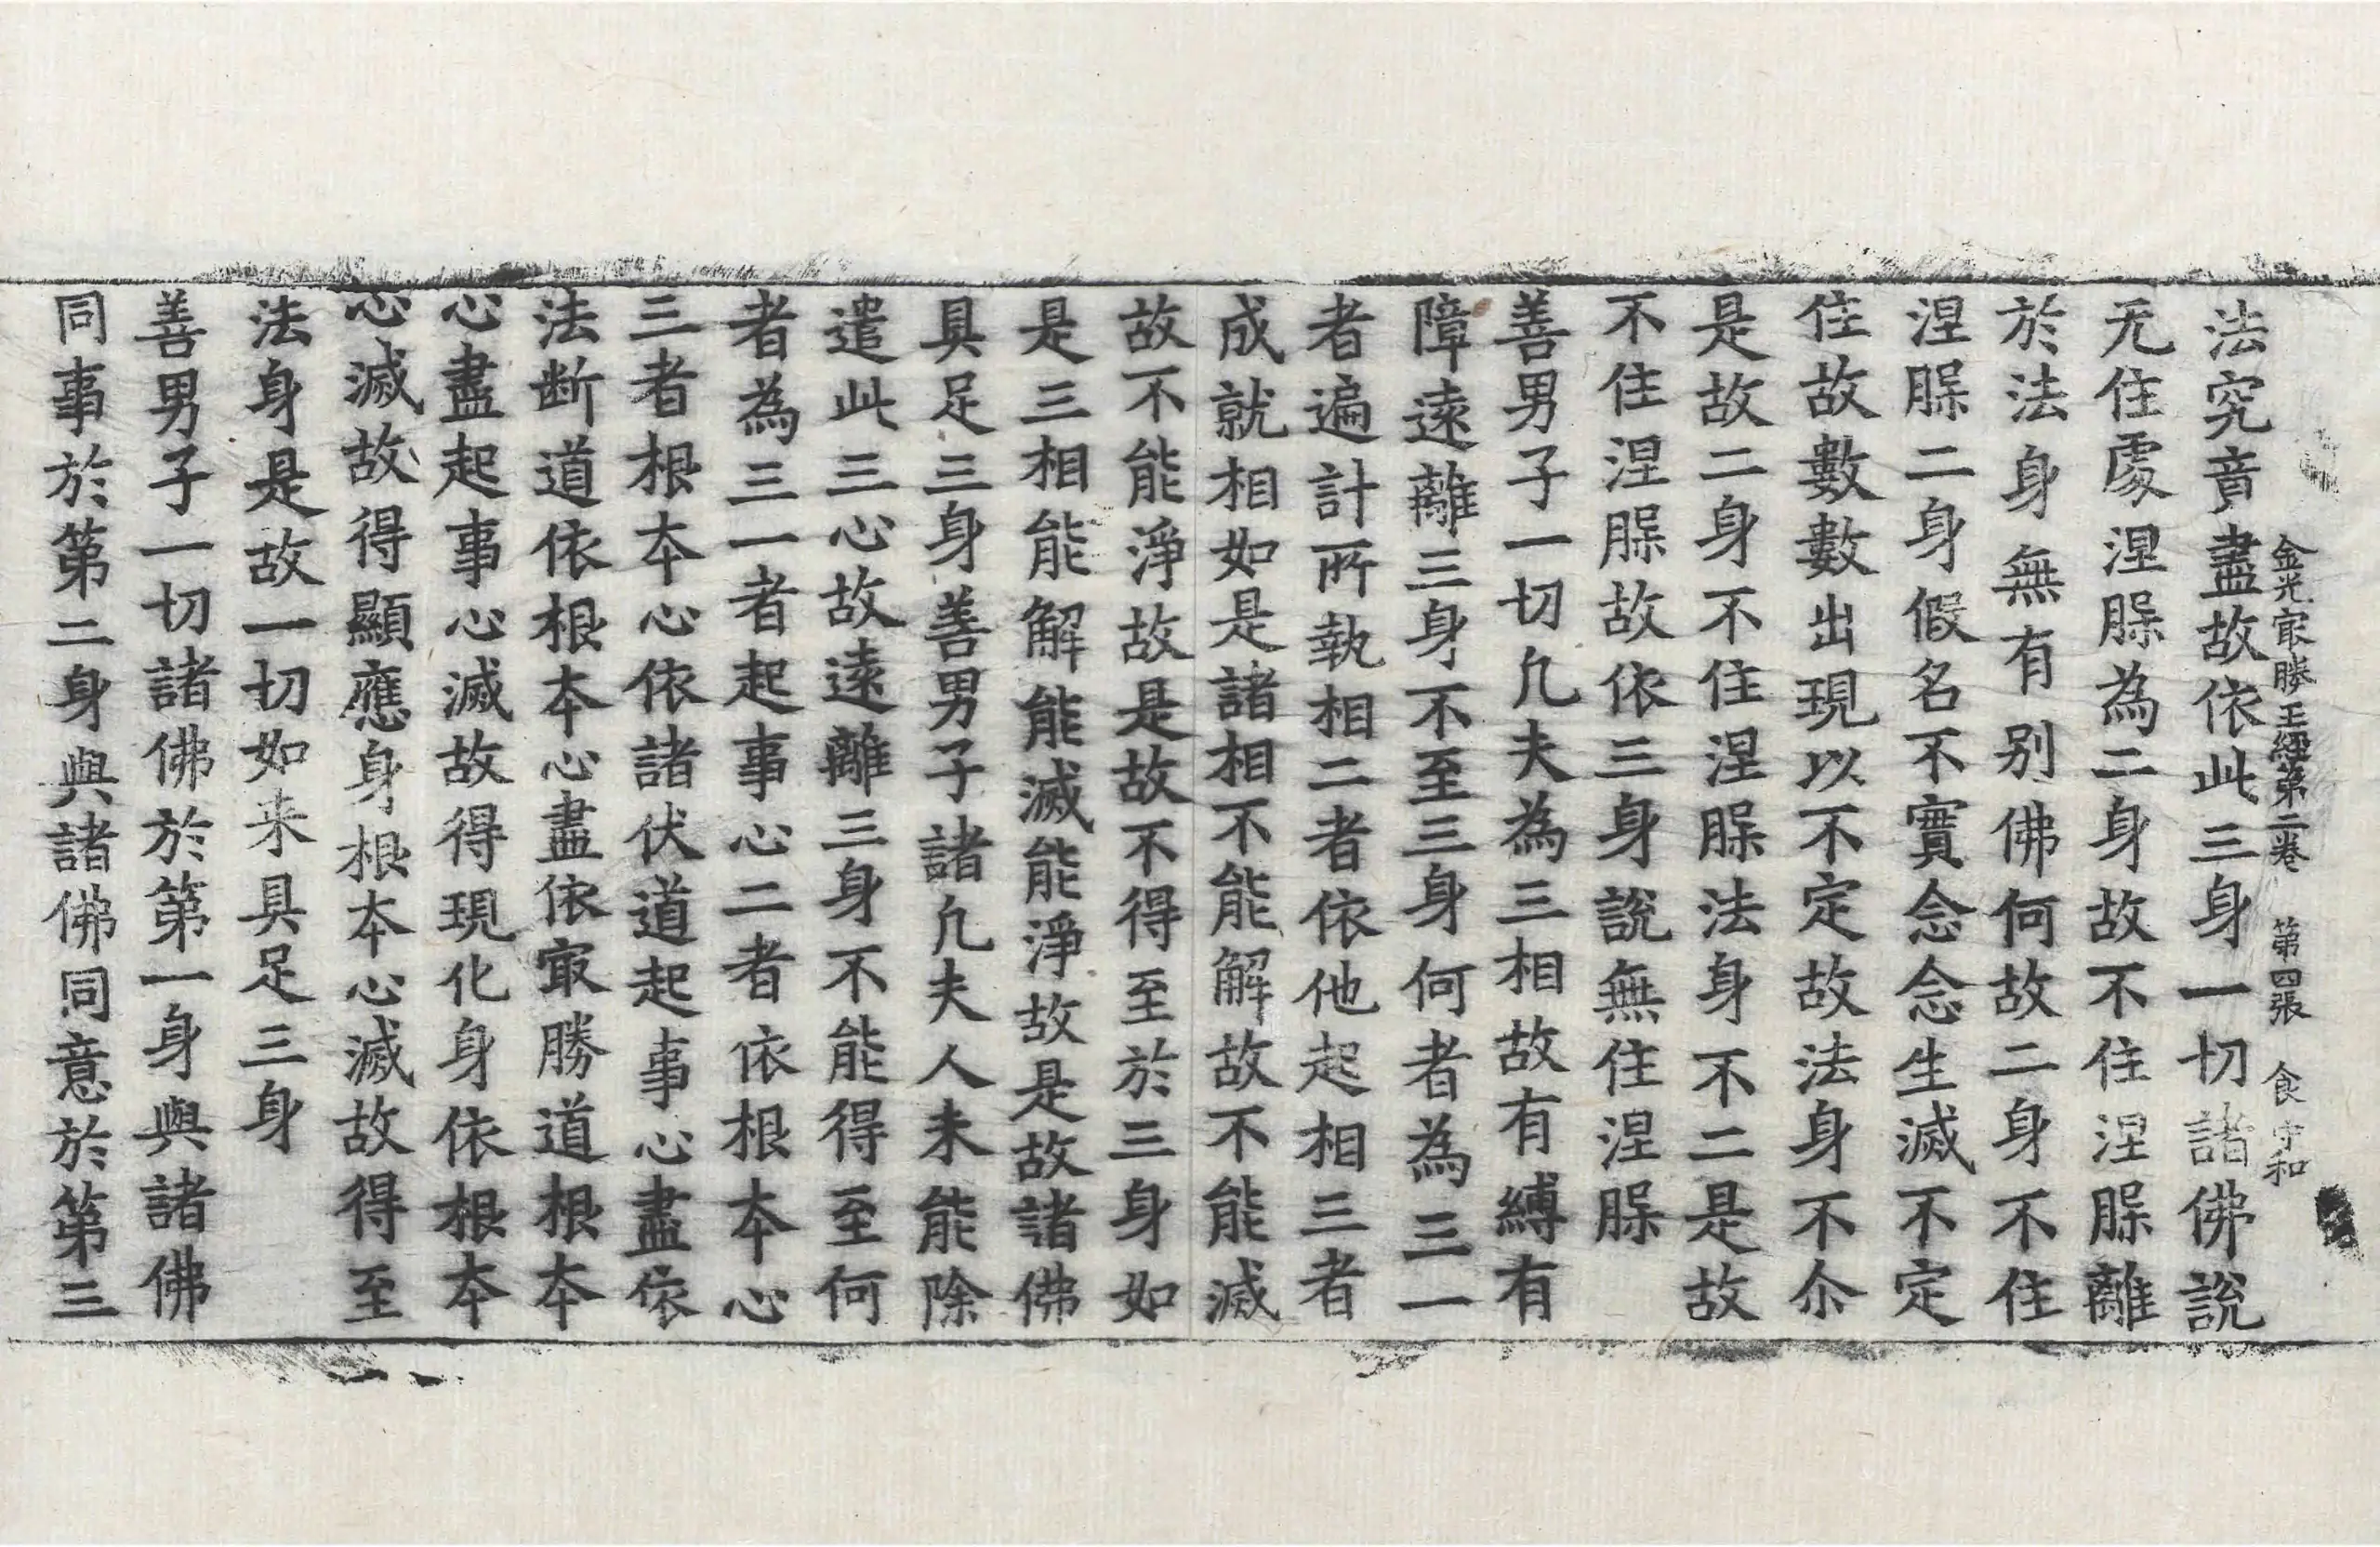 金光冣勝王經第二卷 第四張 食 守和
法究竟盡故依此三身一切諸佛說
无住處涅槃為二身故不住涅槃離
於法身無有別佛何故二身不住
涅槃二身假名不實念念生滅不定
住故數數出現以不定故法身不尒
是故二身不住涅槃法身不二是故
不住涅槃故依三身說無住涅槃
善男子一切凡夫為三相故有縛有
障遠離三身不至三身何者為三一
者遍計所執相二者依他起相三者
成就相如是諸相不能解故不能滅
故不能淨故是故不得至於三身如
是三相能解能滅能淨故是故諸佛
具足三身善男子諸凡夫人未能除
遣此三心故遠離三身不能得至何
者為三一者起事心二者依根本心
三者根本心依諸伏道起事心盡依
法断道依根本心盡依冣勝道根本
心盡起事心滅故得現化身依根本
心滅故得顯應身根本心滅故得至
法身是故一切如来具足三身
善男子一切諸佛於第一身與諸佛
同事於第二身與諸佛同意於第三